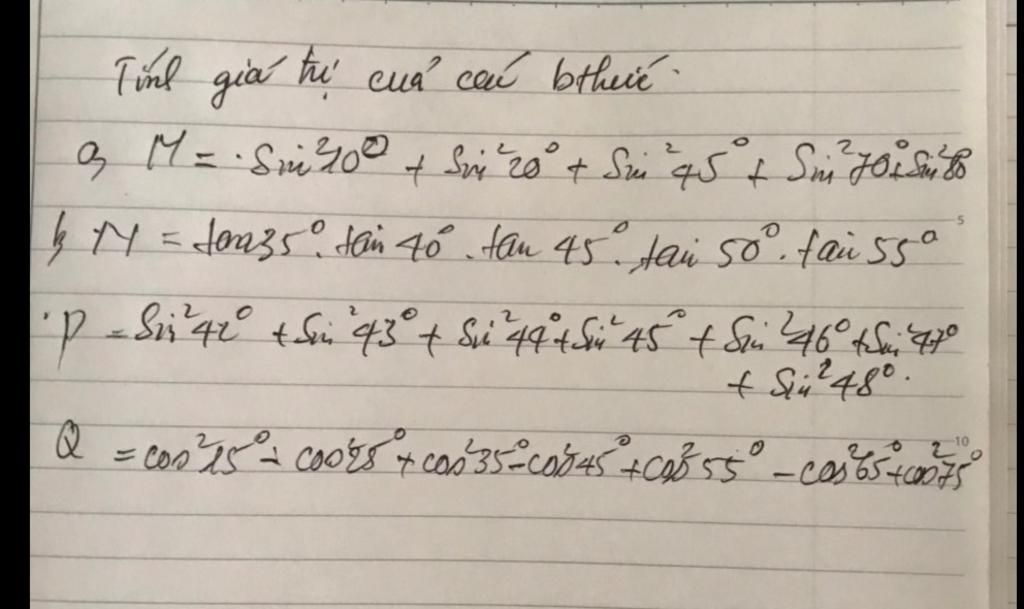 Tính giá trị của các bthức.
a, M = sin²10° + sin²20° + sin²45° + sin²70° + sin²80
b, N = tan35°. tan 40°. tan 45°. tan 50°. tan 55°
P = sin²42° + sin²43° + sin²44° + sin²45° + sin²46° + sin²47°
+ sin²48°.
Q = cos²15° - cos²25° + cos²35° - cos²45° + cos²55° - cos²65° + cos²75°
5
10